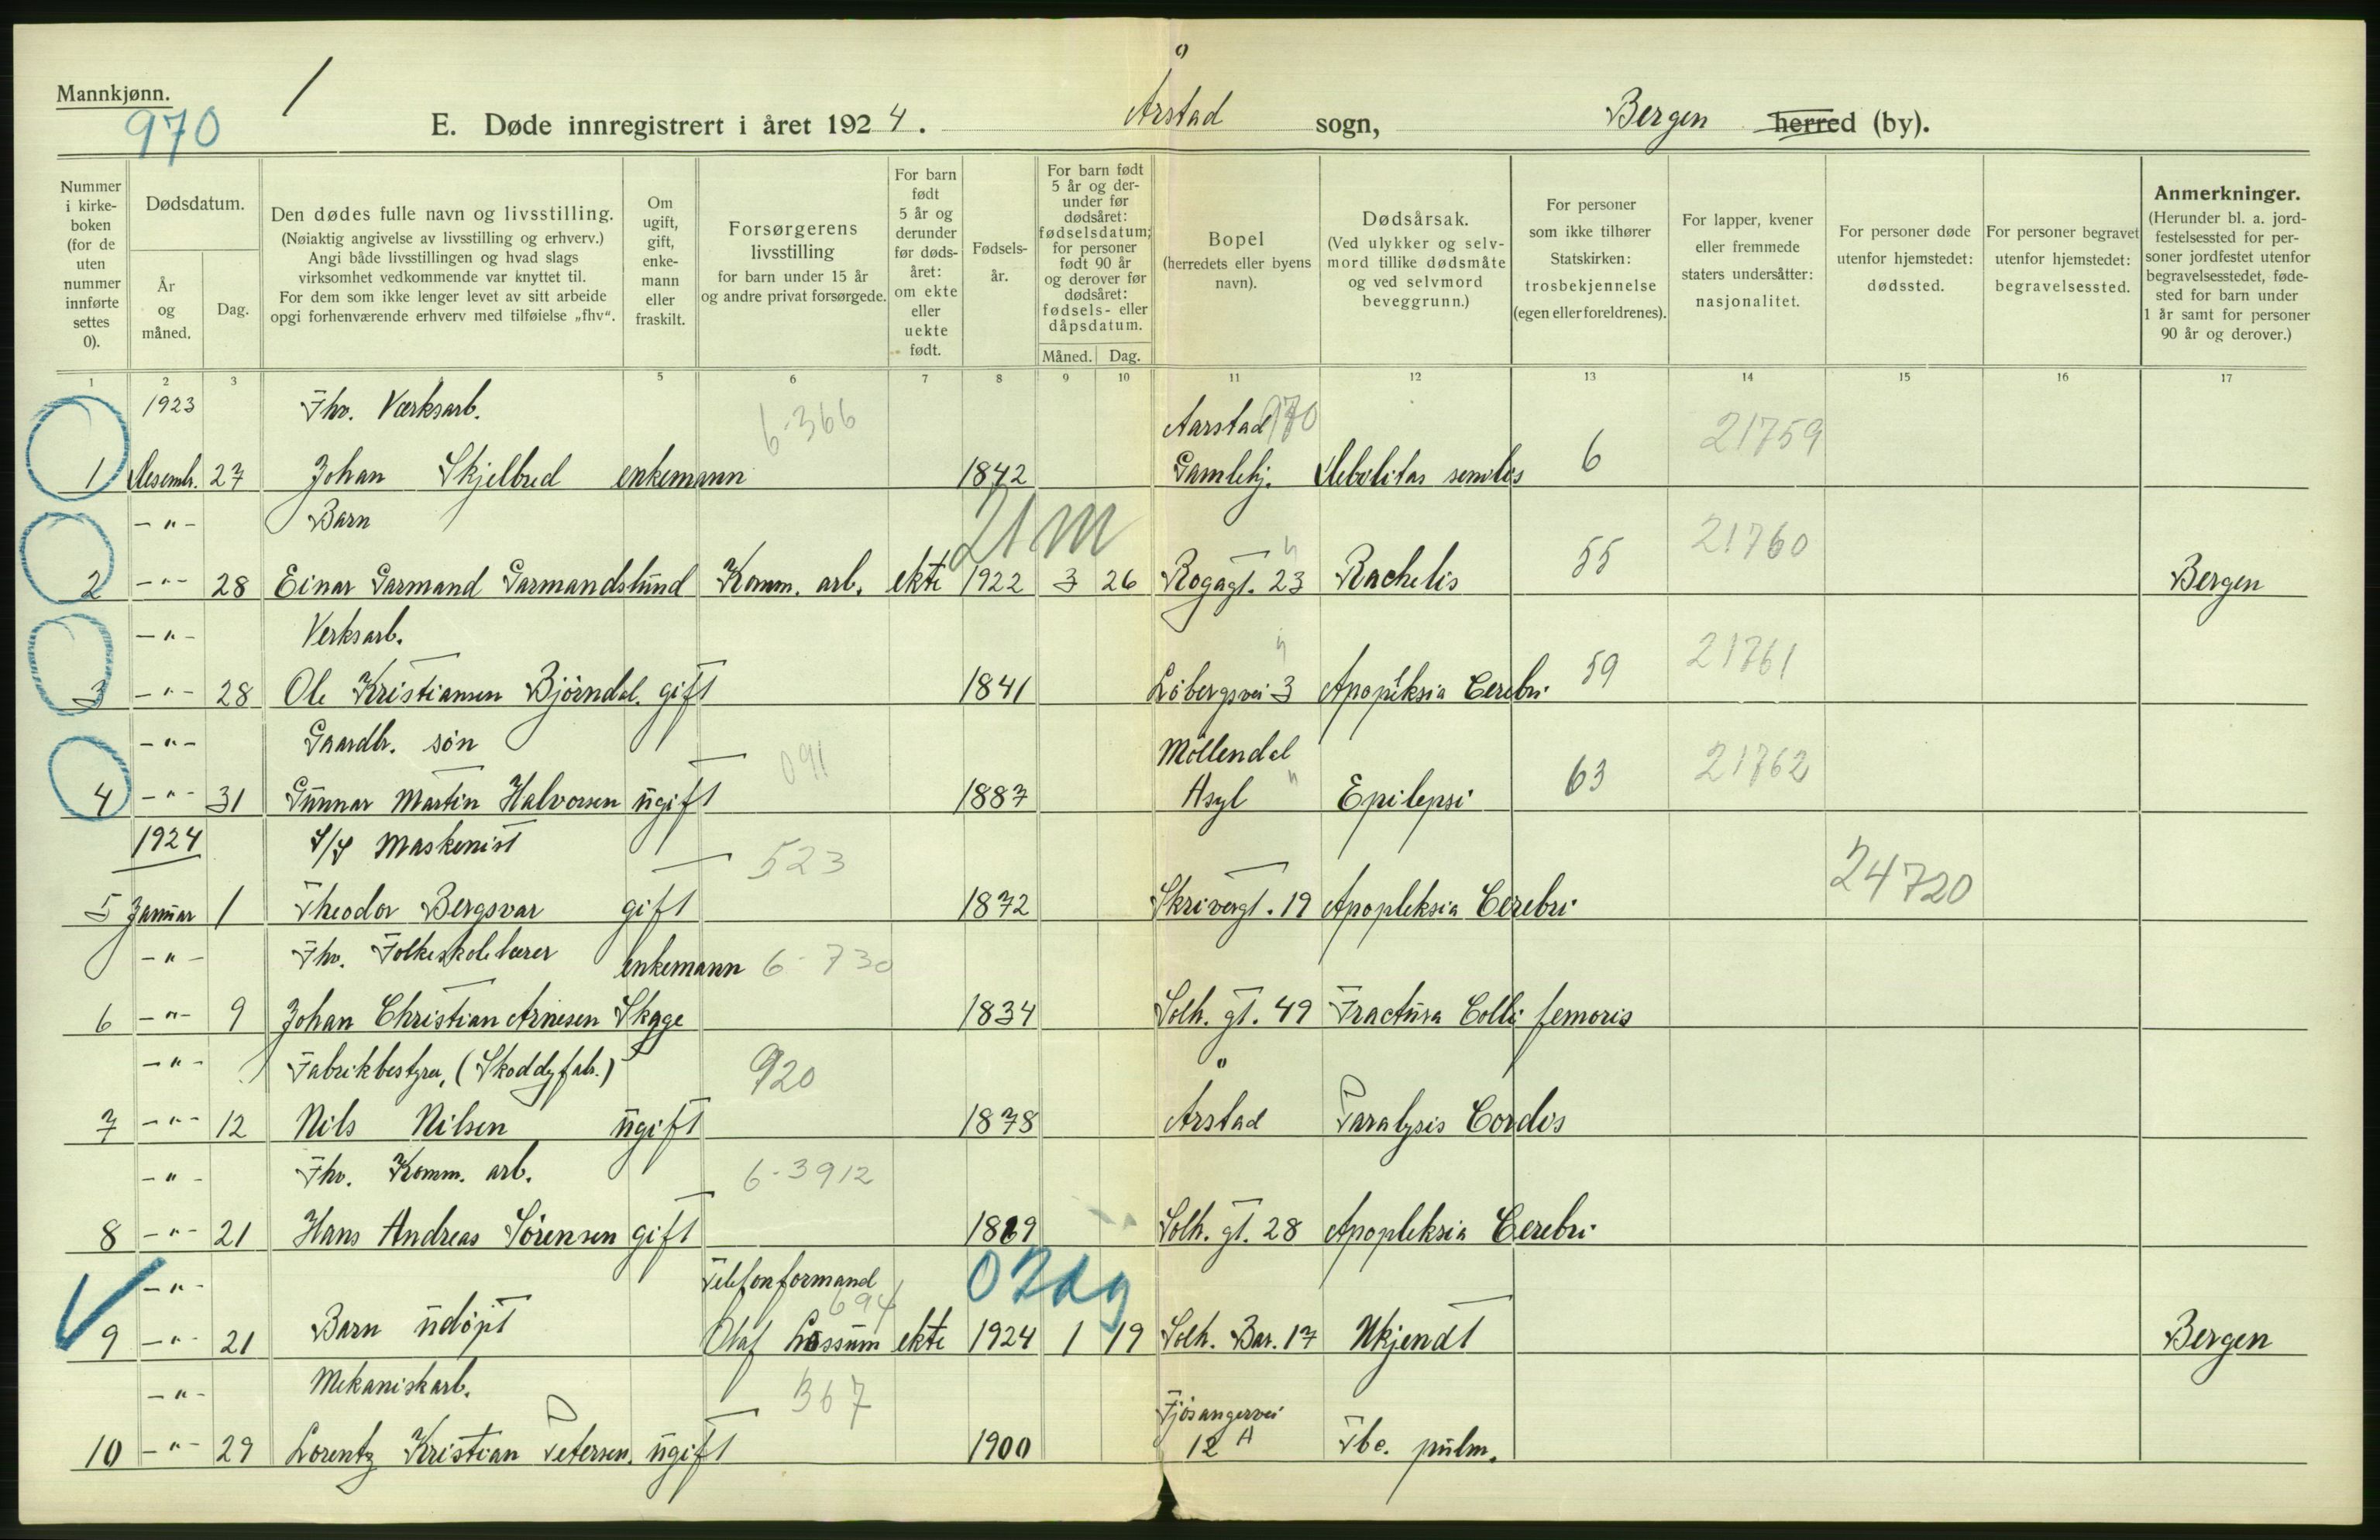 Mannkjønn.
970
1
E. Døde innregistrert i året 1924. Årstad sogn, Bergen herred (by).
Nummer i kirkeboken (for de uten nummer innførte settes 0).
Dødsdatum.
År og måned.
Dag.
Den dødes fulle navn og livsstilling.
(Nøiaktig angivelse av livsstilling og erhverv.)
Angi både livsstillingen og hvad slags
virksomhet vedkommende var knyttet til.
For dem som ikke lenger levet av sitt arbeide
opgi forhenværende erhverv med tilføielse „fhv“.
Om ugift, gift, enkemann eller fraskilt.
Forsørgerens livsstilling
for barn under 15 år
og andre privat forsørgede.
For barn født 5 år og derunder før dødsåret: om ekte eller uekte født.
Fødselsår.
For barn født 5 år og derunder før dødsåret: fødselsdatum; for personer født 90 år og derover før dødsåret: fødsels- eller dåpsdatum.
Måned. Dag.
Bopel
(herredets eller byens navn).
Dødsårsak.
(Ved ulykker og selvmord tillike dødsmåte og ved selvmord beveggrunn.)
For personer som ikke tilhører Statskirken: trosbekjennelse (egen eller foreldrenes).
For lapper, kvener eller fremmede staters undersåtter: nasjonalitet.
For personer døde utenfor hjemstedet: dødssted.
For personer begravet utenfor hjemstedet: begravelsessted.
Anmerkninger.
(Herunder bl. a. jordfestelsessted for personer jordfestet utenfor begravelsesstedet, fødested for barn under 1 år samt for personer 90 år og derover.)
1 2 3 5 6 7 8 9 10 11 12 13 14 15 16 17
1923 Fhv. Værksarb. 6-366 Aarstad 970 21759
1 Desemb. 27 Johan Skjelbred enkemann 1842 Gamlehj. Debilitas senilis 6
- " - Barn 21 m 21760
2 - " - 28 Einar Garmand Garmandslund Komm. arb. ekte 1922 3 26 Rogagt. 23 Rachitis 55 Bergen
- " - Verksarb. 21761
3 - " - 28 Ole Kristiansen Bjørndal. gift 1841 Løbergsvei 3 Apopleksia Cerebri 59
- " - Gaardbr. søn 091 Møllendal 21762
4 - " - 31 Gunnar Martin Halvorsen ugift 1887 Asyl Epilepsi 63
1924 S/S Maskenist 523 24720
5 Januar 1 Theodor Bergsvar gift 1872 Skrivergt. 19 Apopleksia Cerebri
- " - Fhv. Folkeskolelærer enkemann 6-730
6 - " - 9 Johan Christian Arnesen Skage 1834 Solh. gt. 49 Fractura Colli femoris
- " - Fabrikbestyrer, (Skoddyfab.) 920
7 - " - 12 Nils Nilsen ugift 1878 Årstad Paralysis Cordis
- " - Fhv. Komm. arb. 6-3912
8 - " - 21 Hans Andreas Sørensen gift 1869 Solh. gt. 28 Apopleksia Cerebri
- " - Telefonformand 694 02dg
9 - " - 21 Barn udøpt Olaf Lossum ekte 1924 1 19 Solh. Bar. 17 Ukjendt Bergen
- " - Mekaniskarb. 367 Fjøsangervei
10 - " - 29 Lorentz Kristian Petersen. ugift 1900 12 A Tbc. pulm.